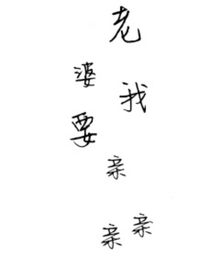 老
婆
我
要
亲
亲
亲